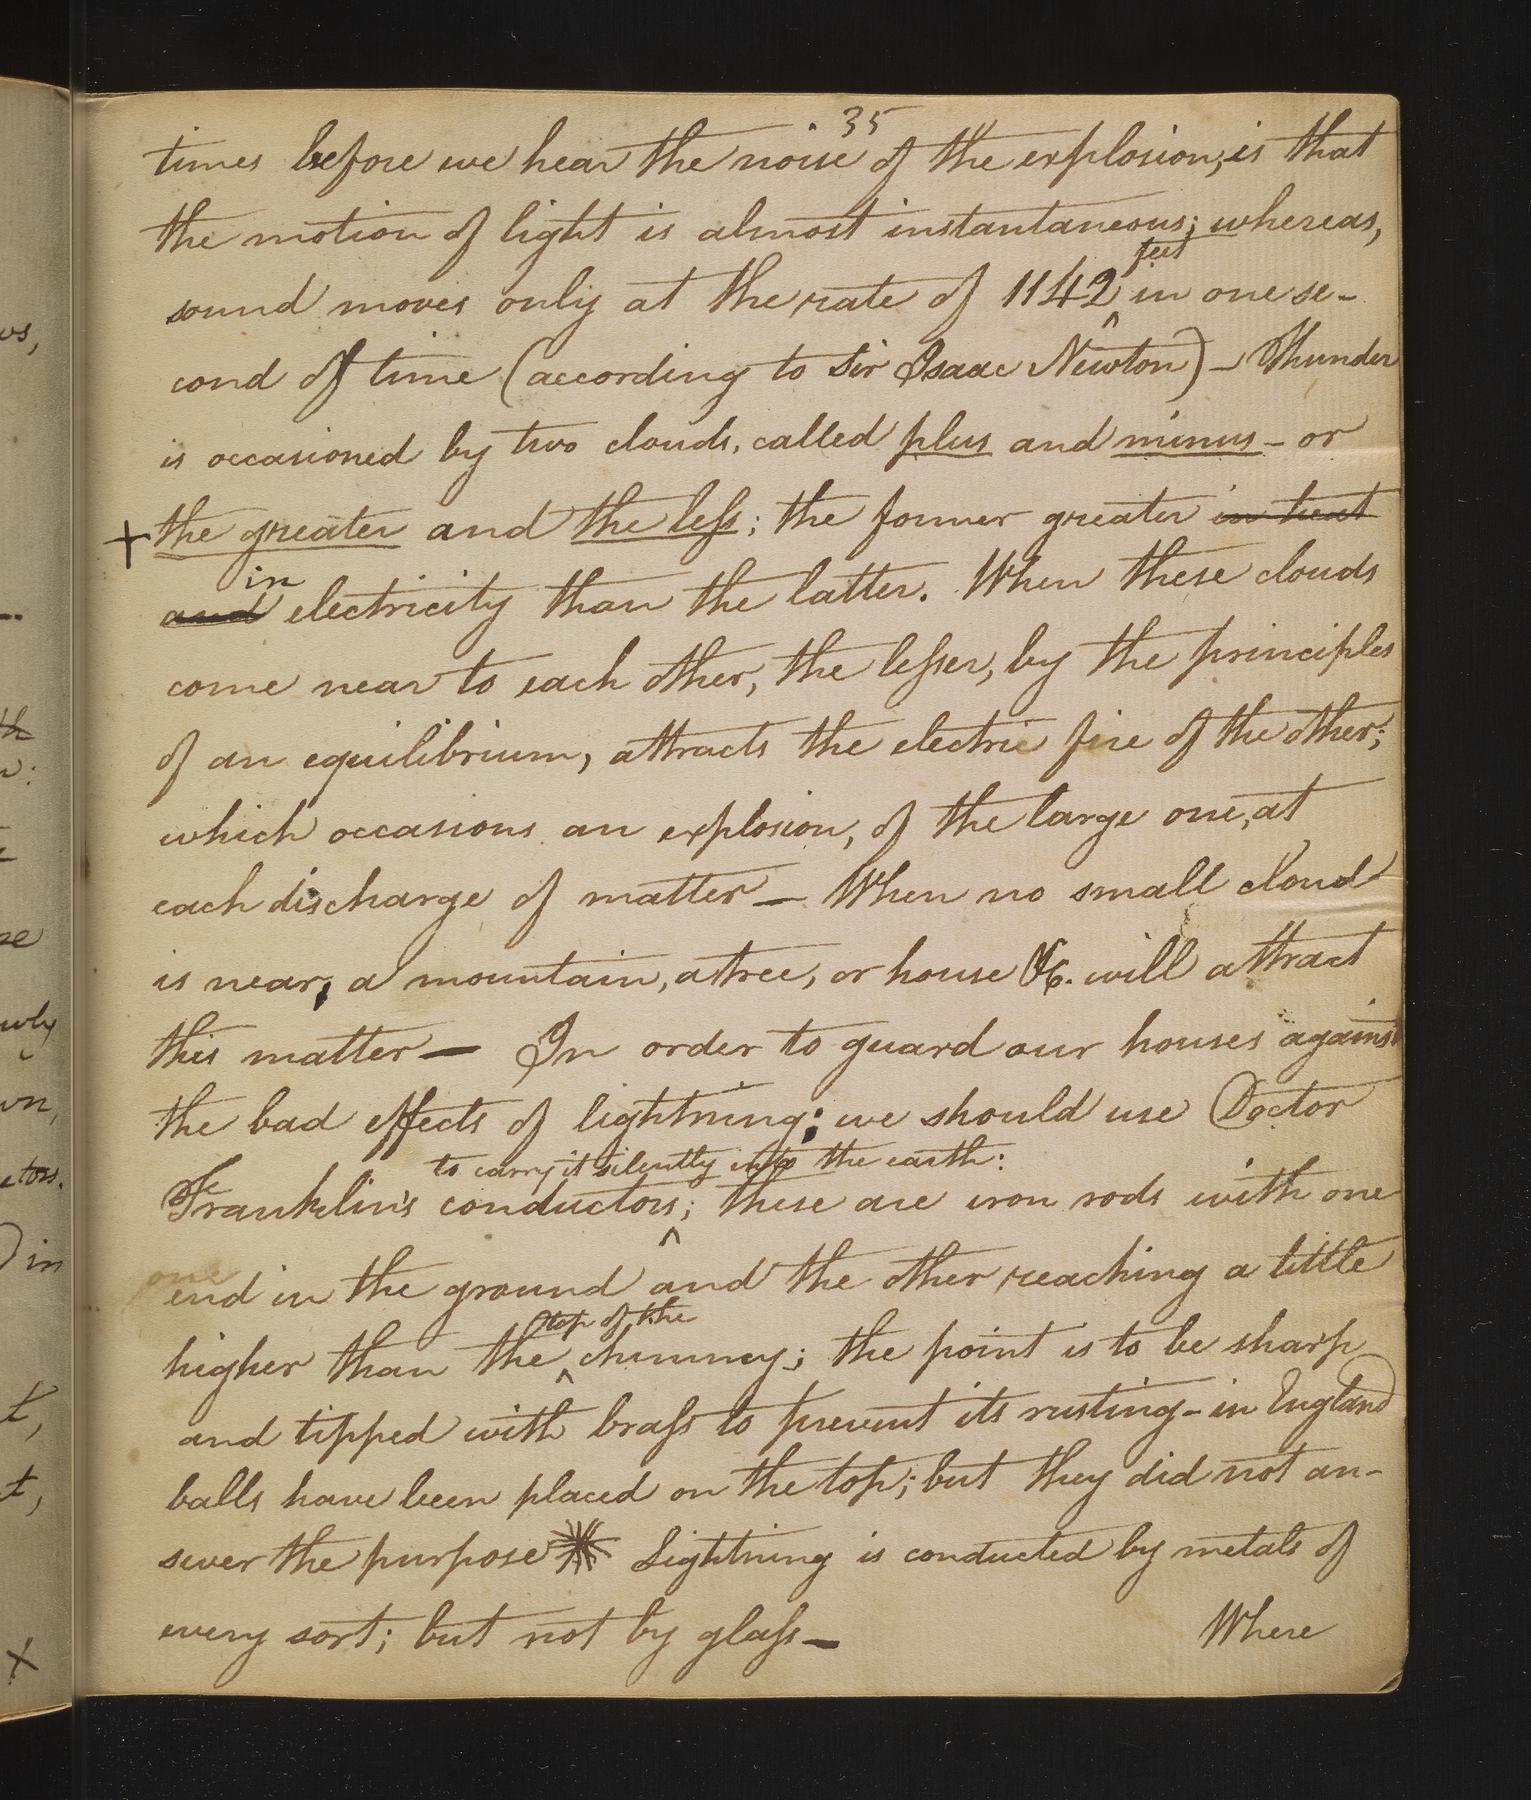 35
times before we hear the noise of the explosion, is that
the motion of light is almost instantaneous; whereas,
feet
sound moves only at the rate of 1142 ^ in one se-
cond of time (according to Sir Isaac Newton) - Thunder
is occasioned by two clouds, called plus and minus - or
+ the greater and the leſs; the former greater in heat
in
and electricity than the latter. When these clouds
come near to each other, the leſser, by the principles
of an equilibrium, attracts the electric fire of the other;
which occasions an explosion, of the large one, at
each discharge of matter — When no small cloud
is near, a mountain, a tree, or house &c. will attract
this matter — In order to guard our houses against
the bad effects of lightning; we should use Doctor
to carry it silently into the earth:
Franklin's conductors; ^ these are iron rods with one
one
end in the ground and the other reaching a little
top of the
higher than the ^ chimney; the point is to be sharp
and tipped with braſs to prevent its rusting - in England
balls have been placed on the top; but they did not an-
swer the purpose * Lightning is conducted by metals of
every sort; but not by glaſs —
Where